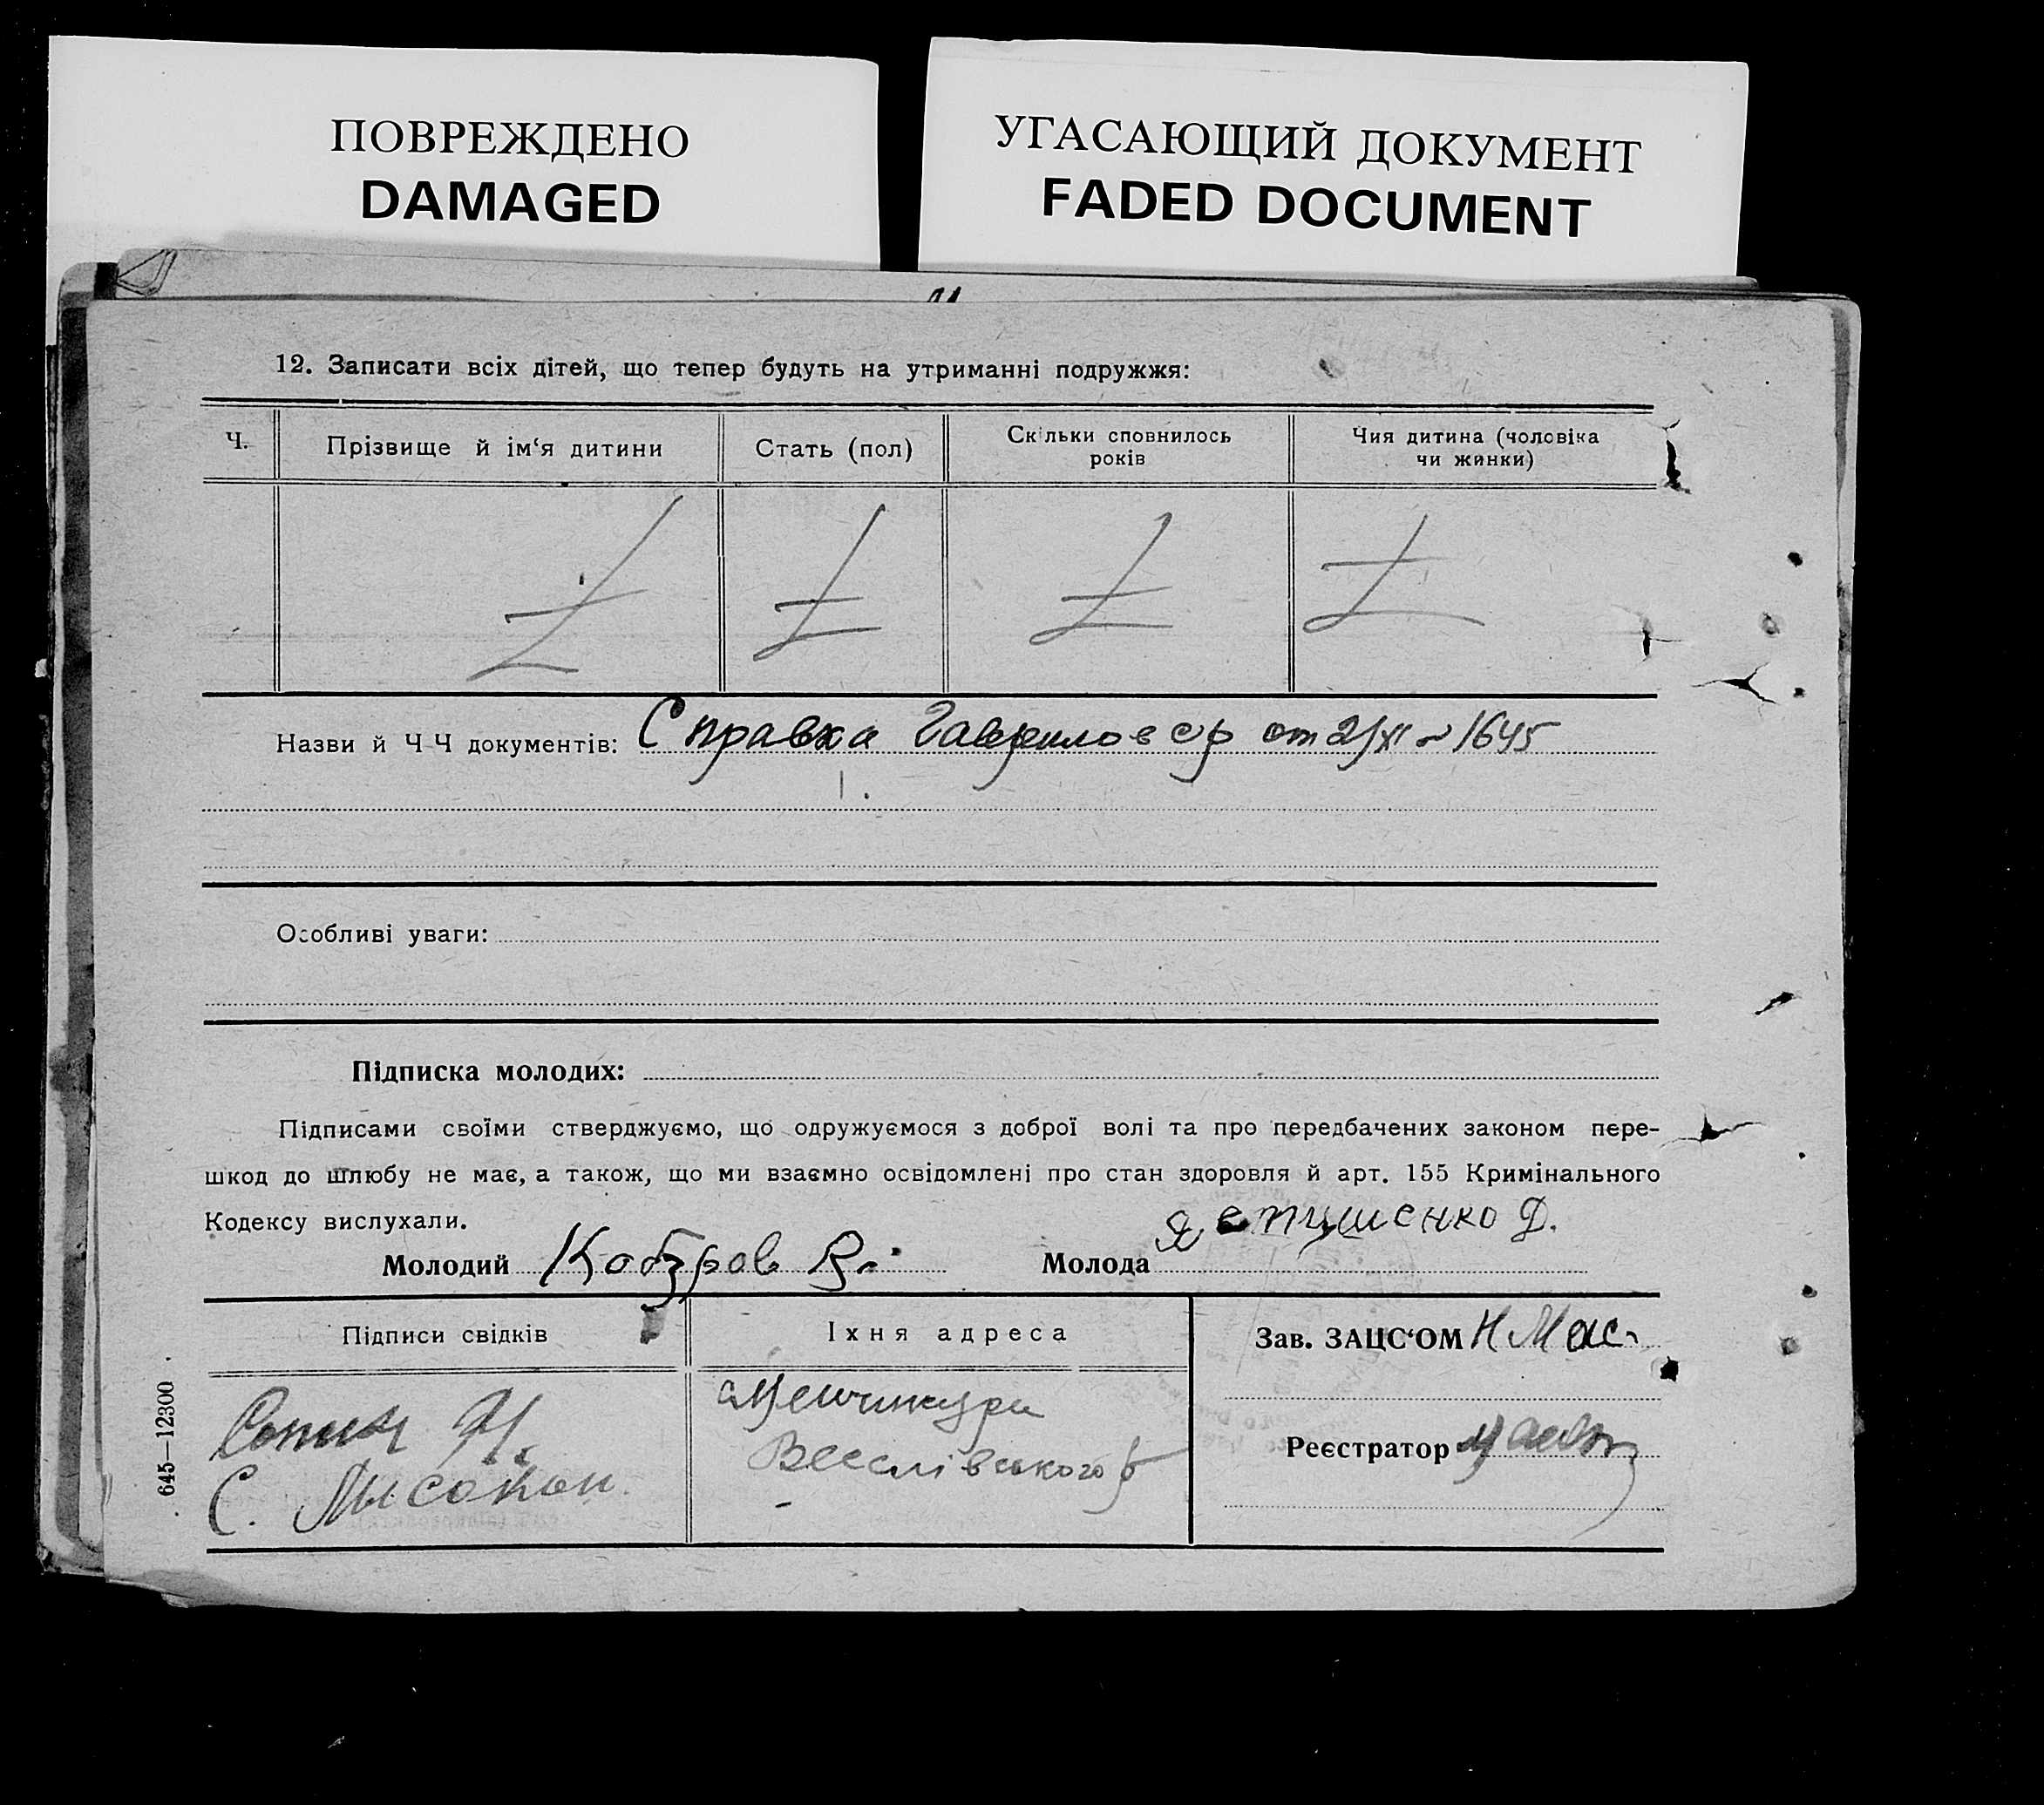 ПОВРЕЖДЕНО
DAMAGED
УГАСАЮЩИЙ ДОКУМЕНТ
FADED DOCUMENT
12. Записати всіх дітей, що тепер будуть на утриманні подружжя:
Ч. Прізвище й ім‘я дитини Стать (пол) Скільки сповнилось років Чия дитина (чоловіка чи жинки)
Назви й Ч Ч документів: Справка от 2/XI № 1645
Особливі уваги:
Підписка молодих:
Підписами своїми стверджуємо, що одружуємося з доброї волі та про передбачених законом пере-
шкод до шлюбу не має, а також, що ми взаємно освідомлені про стан здоровля й арт. 155 Кримінального
Кодексу вислухали.
Молодий Кобзров В. Молода Д.
Підписи свідків Їхня адреса Зав. ЗАЦС‘ОМ Н Мас
Менчикури
С. Веселівського р
Реєстратор
645—12300